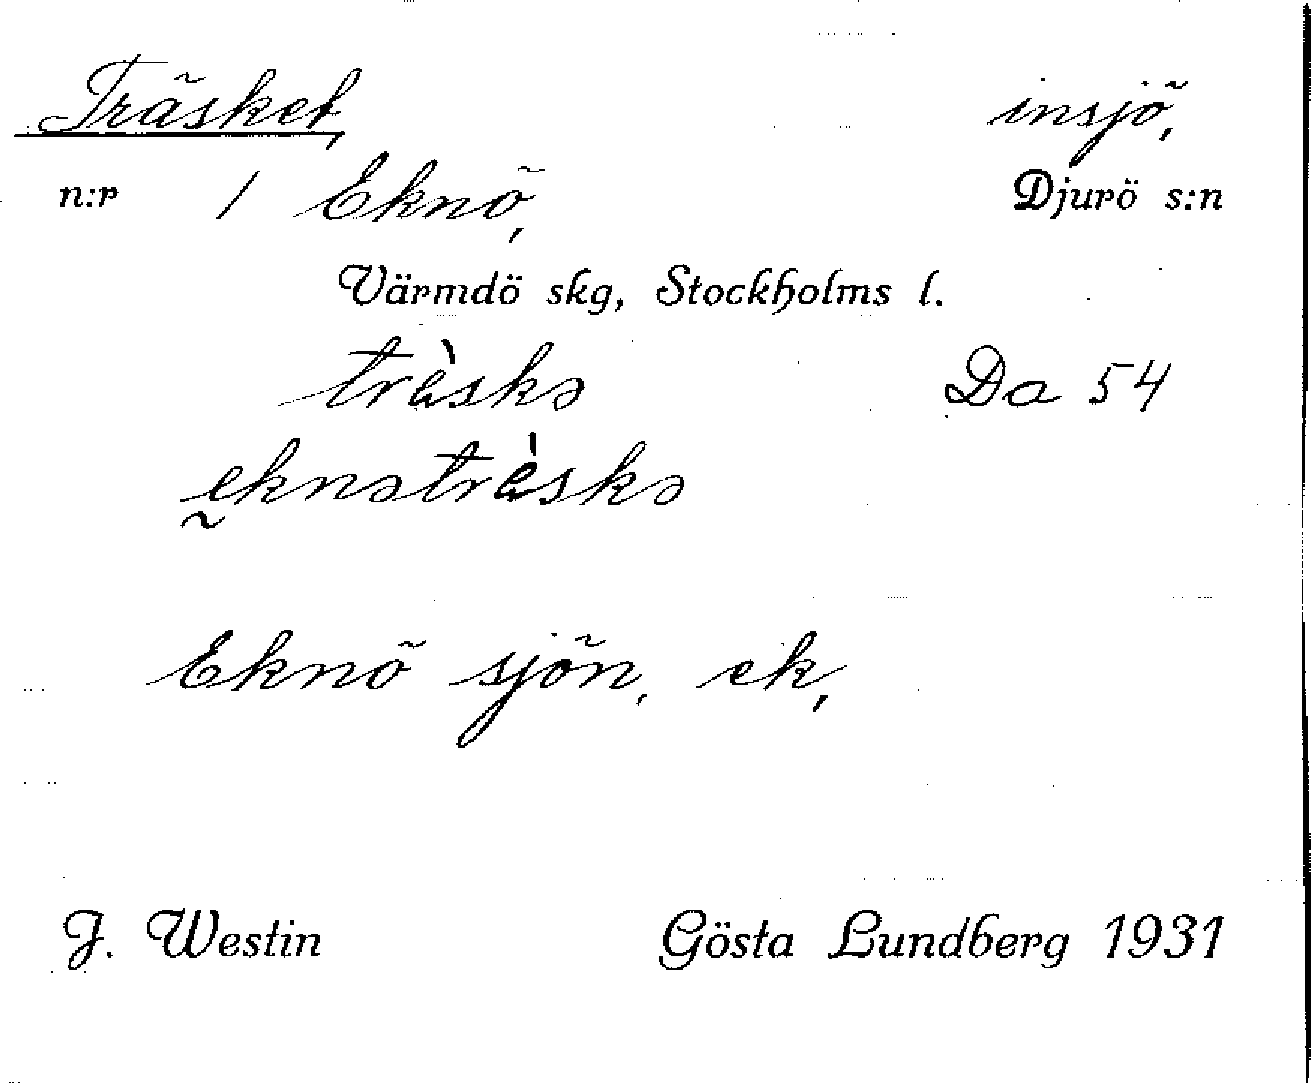 Träsket, insjö,
n:r 1 Eknö, Djurö s:n
Värmdö skg, Stockholms l.
träskə Da 54
eknəträskə
Eknö sjön, ek,
J. Westin Gösta Lundberg 1931